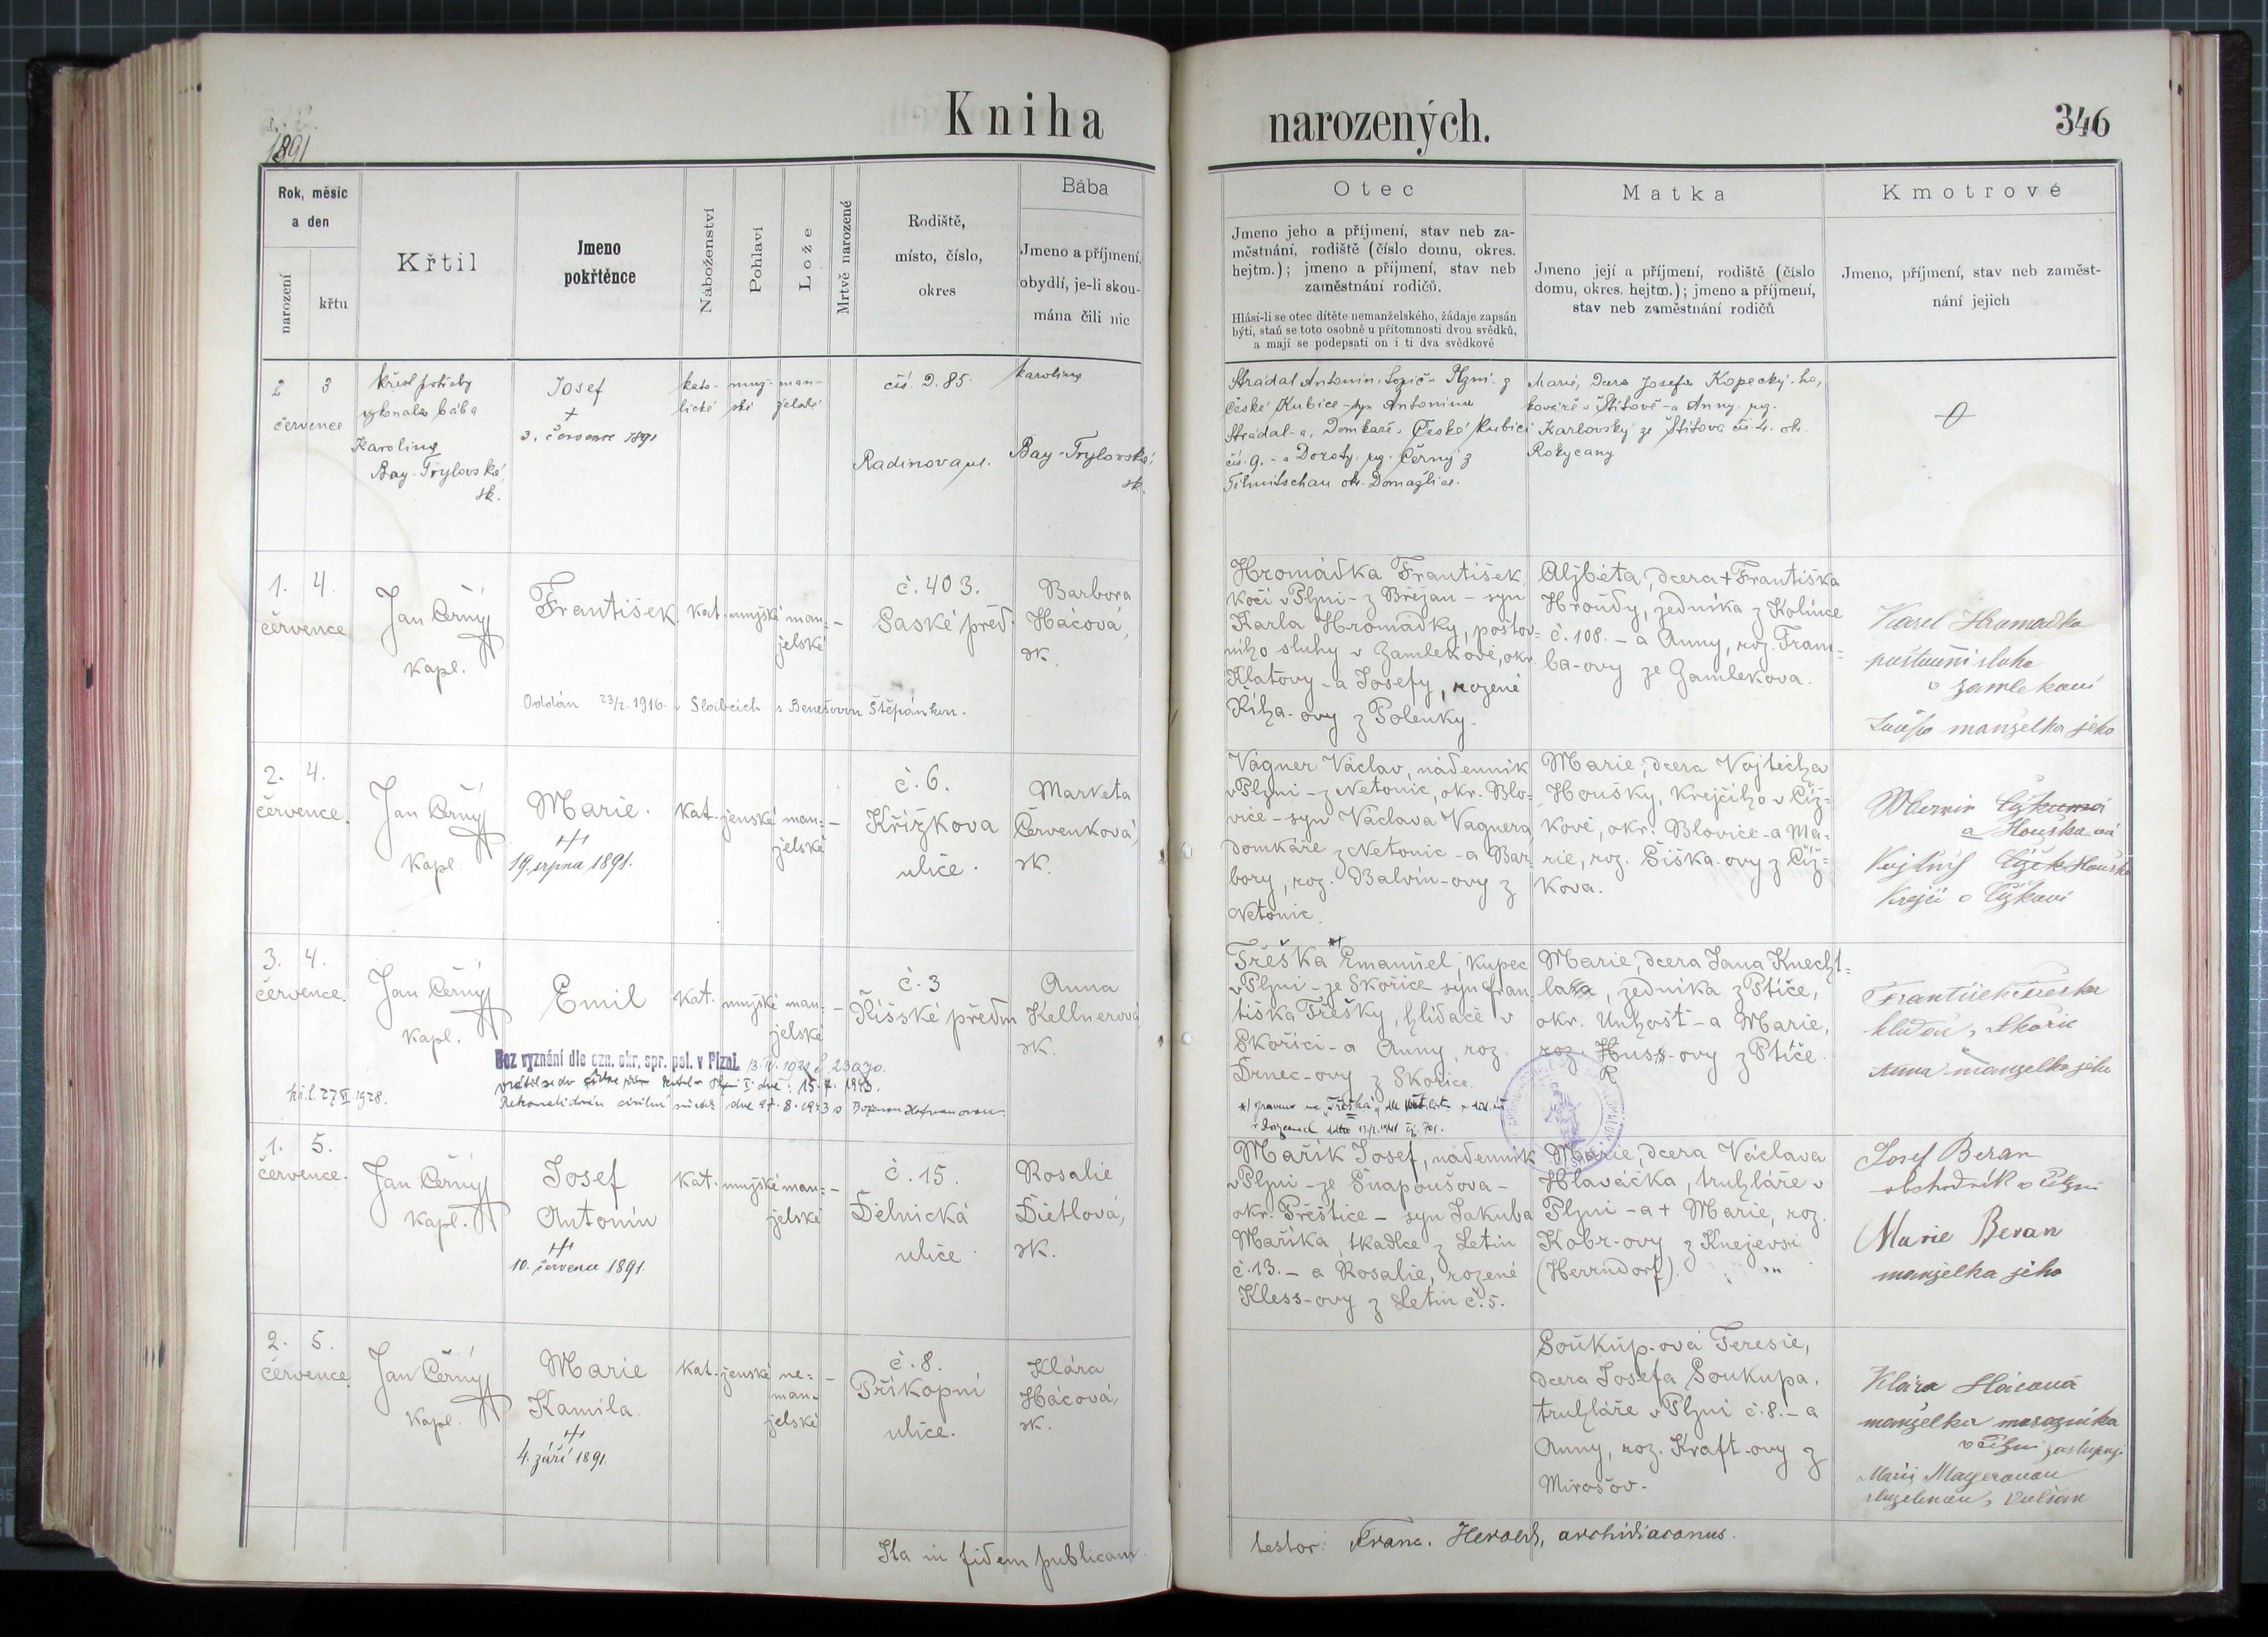 1891
Kniha narozených.
346
Rok, měsíc
a den
narození
křtu
Křtil
Jmeno
pokřtěnce
Náboženství
Pohlaví
Lože
Mrtvě narozené
Rodiště,
místo, číslo,
okres
Bába
Jmeno a příjmení,
obydlí, je-li skou-
mána čili nic
Otec
Jmeno jeho a příjmení, stav neb za-
městnání, rodiště (číslo domu, okres.
hejtm.); jmeno a příjmení, stav neb
zaměstnání rodičů.
Hlásí-li se otec dítěte nemanželského, žádaje zapsán
býti, staň se toto osobně u přítomnosti dvou svědků,
a mají se podepsati on i ti dva svědkové
Matka
Jmeno její a příjmení, rodiště (číslo
domu, okres. hejtm.); jmeno a příjmení,
stav neb zaměstnání rodičů
Kmotrové
Jmeno, příjmení, stav neb zaměst-
nání jejich
2 3
července
křest potřeby
vykonala bába
Karolina
Bay-Trylovská,
sk.
Josef
+
3. července 1891
kato-
lické
muž-
ské
man-
želské
čís. D. 85.
Radinova ul.
Karolina
Bay-Trylovská,
sk.
Strádal Antonín, v Plzni z
České Kubice - syn Antonína
Strádal-a, Domkaře v České Kubici
čís. 9. - a Doroty roz. Černý z
okr. Domažlice.
Marie, dcera Josefa Kopecký-ho,
kováře v Štítově - a Anny roz.
Karlovský ze Štítova čís. 4. okr.
Rokycany
1. 4.
července
Jan Černý
kapl.
František
kat.
mužské
man=
želské
–
č. 403.
Saské předm.
Barbora
Hácová,
sk.
Oddán 23/2. 1916. v Slabcích s Benešovou Štěpánkou.
Hromádka František,
kočí v Plzni - z Břežan - syn
Karla Hromádky, poštov=
ního sluhy v Zamlekově, okr.
Klatovy - a Josefy, rozené
Říha-ovy z Polenky.
Alžběta, dcera + Františka
Hroudy, zedníka z Kolince
č. 108. - a Anny, roz. Fram=
ba-ovy ze Zamlekova.
Karel Hromadka
poštovní sluha
v Zamlekově
manželka jeho
2. 4.
července.
Jan Černý
kapl.
Marie.
+
19. srpna 1891.
kat.
ženské
man=
želské
–
č. 6.
Křížkova
ulice.
Marketa
Červenková,
sk.
Vágner Václav, nádenník
v Plzni - z Netonic, okr. Blo=
vice - syn Václava Vagnera,
domkáře z Netonic - a Bar=
bory, roz. Balvín-ovy z
Netonic.
Marie, dcera Vojtěcha
Houšky, krejčího v Číž=
kově, okr. Blovice - a Ma=
rie, roz. Šiška-ovy z Číž=
kova.
a Houška ová
Vojtěch Čížek Houška
Krejčí v Čížkově
3. 4.
července.
Jan Černý
kapl.
Emil
kat.
mužské
man=
želské
–
č. 3
Říšské předm.
Anna
Kellnerová
sk.
Bez vyznání dle ozn. okr. spr. pol. v Plzni.
27. 1928.
Třeška*) Emanuel, kupec
v Plzni - ze Skořice - syn Fran=
tiška Třešky, hlídače v
Skořici - a Anny, roz.
Drnec-ovy z Skořice.
Marie, dcera Jana Knecht=
la, zedníka z Ptíče,
okr. Unhošť - a Marie,
roz. Hus-ovy z Ptíče.
František Třeška
hlídač v Skořici
Anna manželka jeho
1. 5.
července.
Jan Černý
kapl.
Josef
Antonín
+
10. července 1891.
kat.
mužské
man=
želské
–
č. 15.
Dělnická
ulice.
Rosalie
Dietlová,
sk.
Mařík Josef, nádenník
v Plzni - ze Snapoušova -
okr. Přeštice - syn Jakuba
Maříka, tkadlce z Letin
č. 13. - a Rosalie, rozené
Kless-ovy z Letin č. 5.
Marie, dcera Václava
Hlaváčka, truhláře v
Plzni - a + Marie, roz.
Kobr-ovy z Kneževsi
(Herrndorf).
Josef Beran
obchodník v Plzni
Marie Beran
manželka jeho
2. 5.
července.
Jan Černý
kapl.
Marie
Kamila.
+
4. září 1891.
kat.
ženské
ne=
man=
želské
–
č. 8.
Příkopní
ulice.
Klára
Hácová,
sk.
Soukup-ová Teresie,
dcera Josefa Soukupa,
truhláře v Plzni č. 8. - a
Anny, roz. Kraft-ovy z
Mirošov.
Klára Hácová
manželka
v Plzni zastupuje
Marii Mayerovou
Ita in fidem publicam
testor: Franc. Herold, archidiaconus.